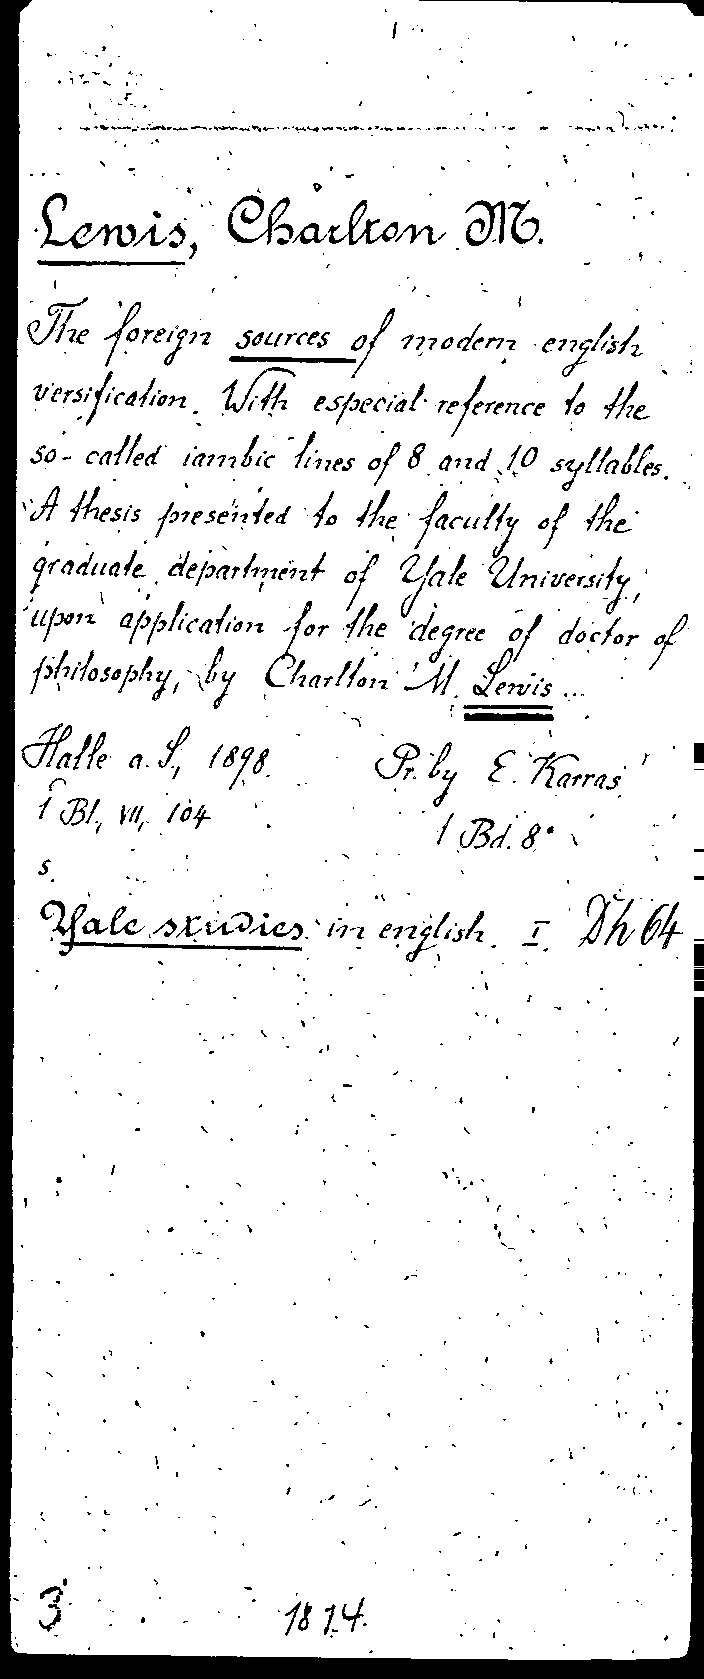 Lewis, Charlton M.
The foreign sources of modern english
versification. With especial reference to the
so-called iambic lines of 8 and 10 syllables.
A thesis presented to the faculty of the
graduate department of Yale University,
upon application for the degree of doctor of
philosophy, by Charlton M. Lewis...
Halle a. S., 1898. Pr. by E. Karras
1 Bl., VII, 104 1 Bd. 8°
s.
Yale studies in english. I. Dh 64
3 1874.